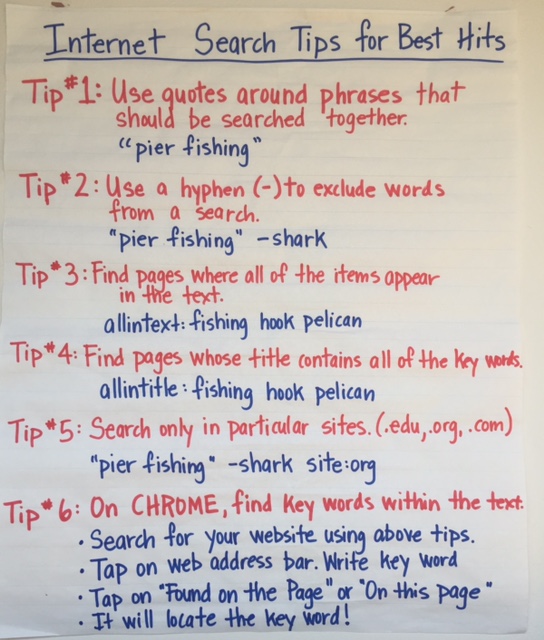 Internet Search Tips for Best Hits
Tip #1: Use quotes around phrases that
should be searched together.
"pier fishing"
Tip #2: Use a hyphen (-) to exclude words
from a search.
"pier fishing" -shark
Tip #3: Find pages where all of the items appear
in the text.
allintext: fishing hook pelican
Tip #4: Find pages whose title contains all of the key words.
allintitle: fishing hook pelican
Tip #5: Search only in particular sites. (.edu, .org, .com)
"pier fishing" -shark site:org
Tip #6: On CHROME, find key words within the text.
• Search for your website using above tips.
• Tap on web address bar. Write key word
• Tap on "Found on the Page" or "On this page"
• It will locate the key word!